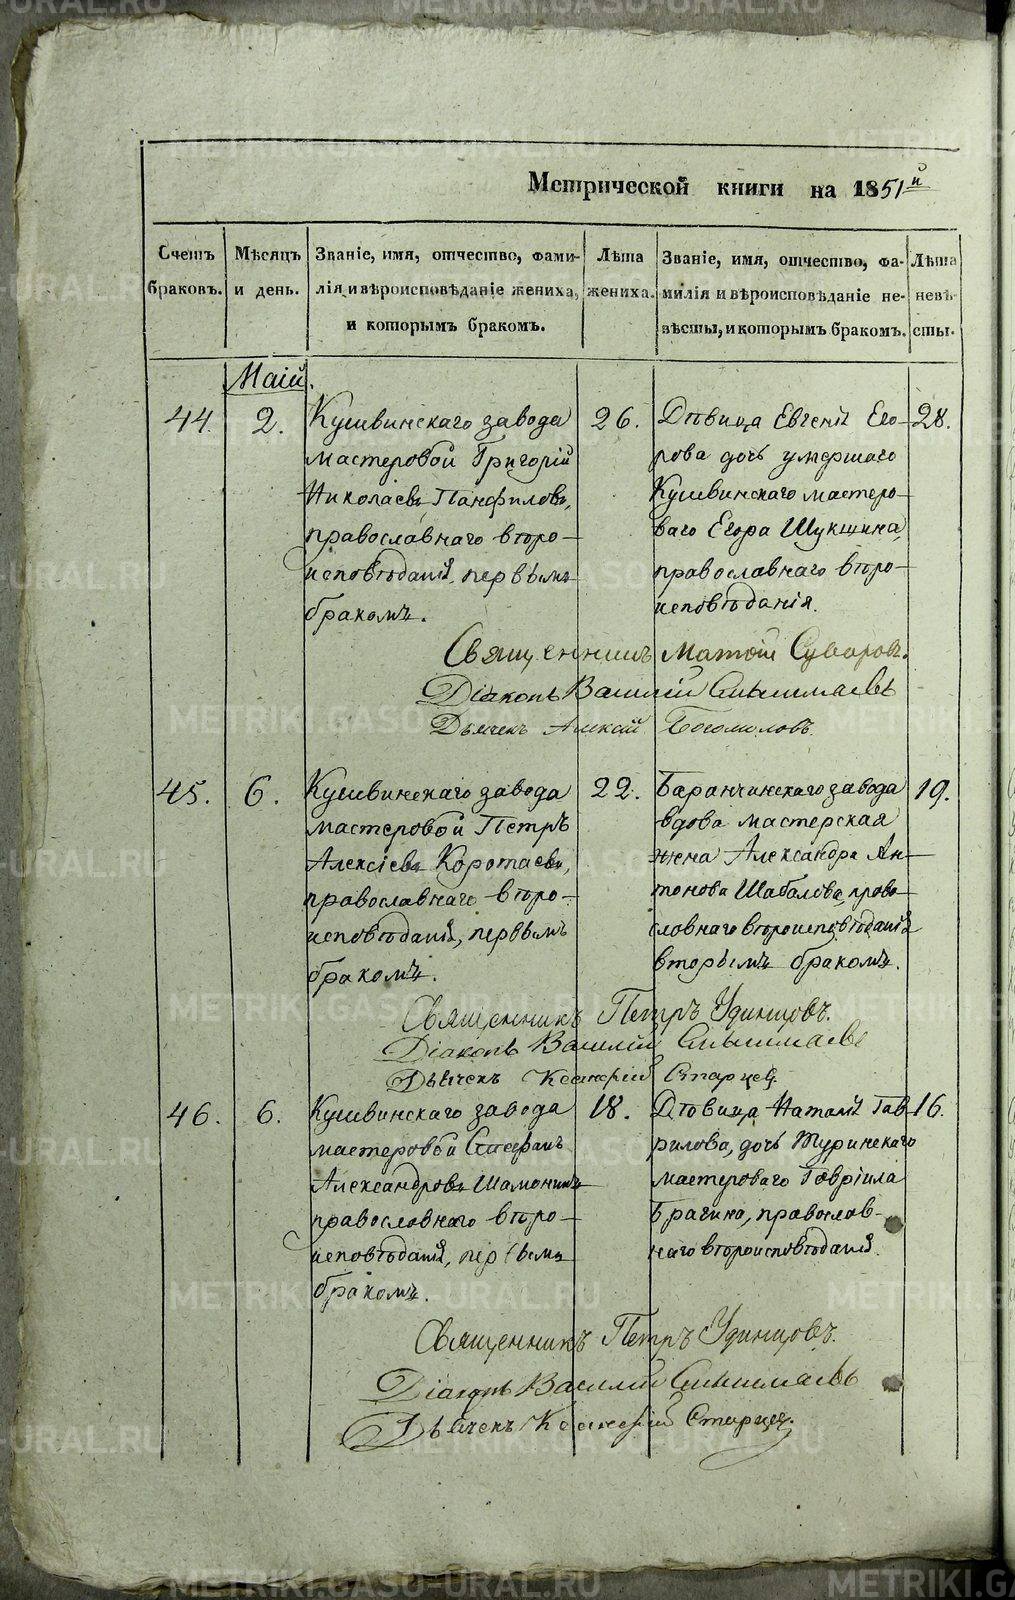 Метрической книги на 1851й
Счетъ браковъ.
Мѣсяцъ и день.
Званіе, имя, отчество, фами-
лія и вѣроисповѣданіе жениха,
и которымъ бракомъ.
Лѣта
жениха.
Званіе, имя, отчество, фа-
милія и вѣроисповѣданіе не-
вѣсты, и которымъ бракомъ.
Лѣта
невѣ-
сты.
Маій.
44.
2.
Кушвинскаго завода
мастеровой Григорій
Николаевъ Панфиловъ,
православнаго вѣро-
исповѣданія, первымъ
бракомъ.
26.
Дѣвица Евгенія Его-
рова дочь умершаго
Кушвинскаго мастеро-
ваго Егора Шукшина,
православнаго вѣро-
исповѣданія.
28.
Священникъ Матѳій Суворовъ.
Діаконъ Василій
Дьячекъ Алексій Богомоловъ
45.
6.
Кушвинскаго завода
мастеровой Петръ
Алексіевъ Коротаевъ,
православнаго вѣро-
исповѣданія, первымъ
бракомъ.
22.
Баранчинскаго завода
вдова мастерская
жена Александра Ан-
тонова Шабалова, право-
славнаго вѣроисповѣданія
вторымъ бракомъ.
19.
Священникъ Петръ Удинцовъ.
Діаконъ Василій
Дьячекъ Старцев
46.
6.
Кушвинскаго завода
мастеровой Стефанъ
Александровъ Шамонинъ
православнаго вѣро-
исповѣданія, первымъ
бракомъ.
18.
Дѣвица Наталія Гав-
рилова, дочь Туринскаго
мастероваго Гавріила
Брагина, православ-
наго вѣроисповѣданія.
16.
Священникъ Петръ Удинцовъ.
Діаконъ Василій
Дьячекъ Старцев.
METRIKI.GASO-URAL.RU